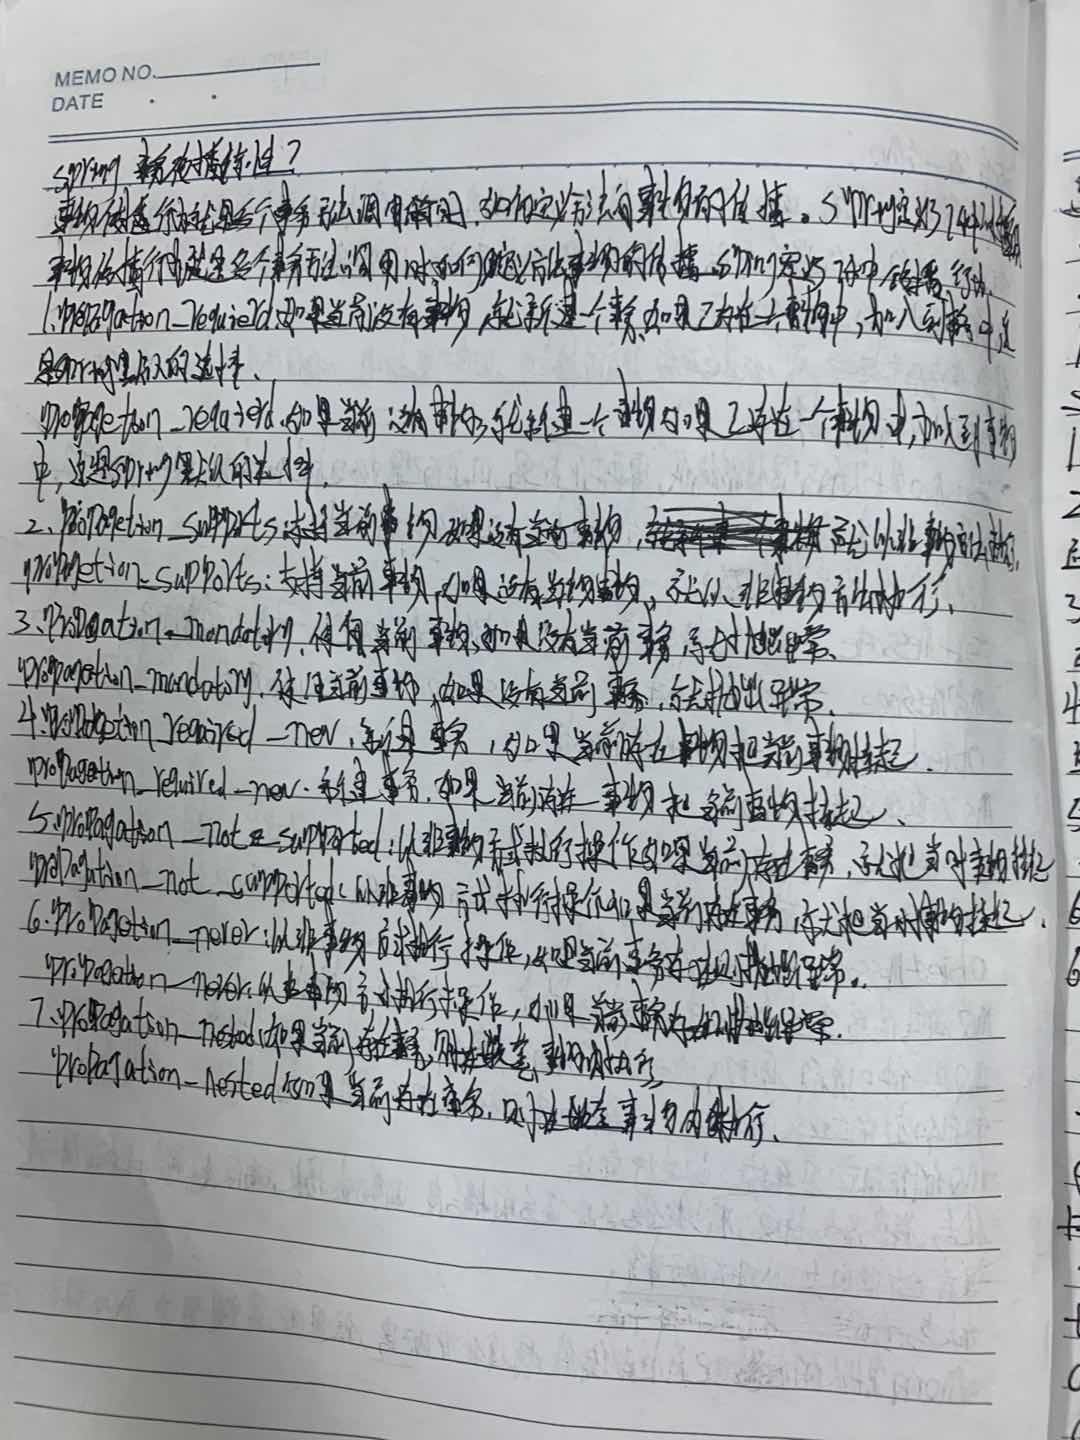 MEMO NO.
DATE
spring 事务传播特性?
事物传播行为就是多个事务方法调用时,如何定义方法间事物的传播。spring定义了7种传播
事物传播行为就是多个事务方法调用时如何定义方法事物的传播.spring定义7种传播行为.
1.propagation_requierd.如果当前没有事物,就新建一个事务.如果已存在一个事物中,加入到事务中这
是spring默认的选择.
propagetion_requierd.如果当前没有事物,就新建一个事物,如果已存在一个事物中,加入到事物
中,这是spring默认的选择.
2.propagetion_supports:支持当前事物,如果没有当前事物,就以非事物方法执行.
propagetion_supports:支持当前事物,如果没有当前事物,就以非事物方法执行.
3.propagation_mandatory.使用当前事物,如果没有当前事务,就抛出异常.
propagation_mandatory.使用当前事物,如果没有当前事务,就抛出异常.
4.propagetion_required_new.新建事务,如果当前存在事物把当前事物挂起.
propagation_required_new.新建事务.如果当前存在事物把当前事物挂起.
5.propagation_not_supported:以非事物方式执行操作如果当前存在事务,就把当时事物挂起
propagation_not_supported:以非事物方式执行操作如果当前存在事务,就把当时事物挂起.
6.propagetion_never:以非事物方式执行操作,如果当前事务存在则抛出异常.
propagation_never.以非事物方式执行操作,如果当前事务存在则抛出异常.
7.propagation_nested:如果当前存在事务,则在嵌套事物内执行
propagation_nested如果当前存在事务,则在嵌套事物内执行.